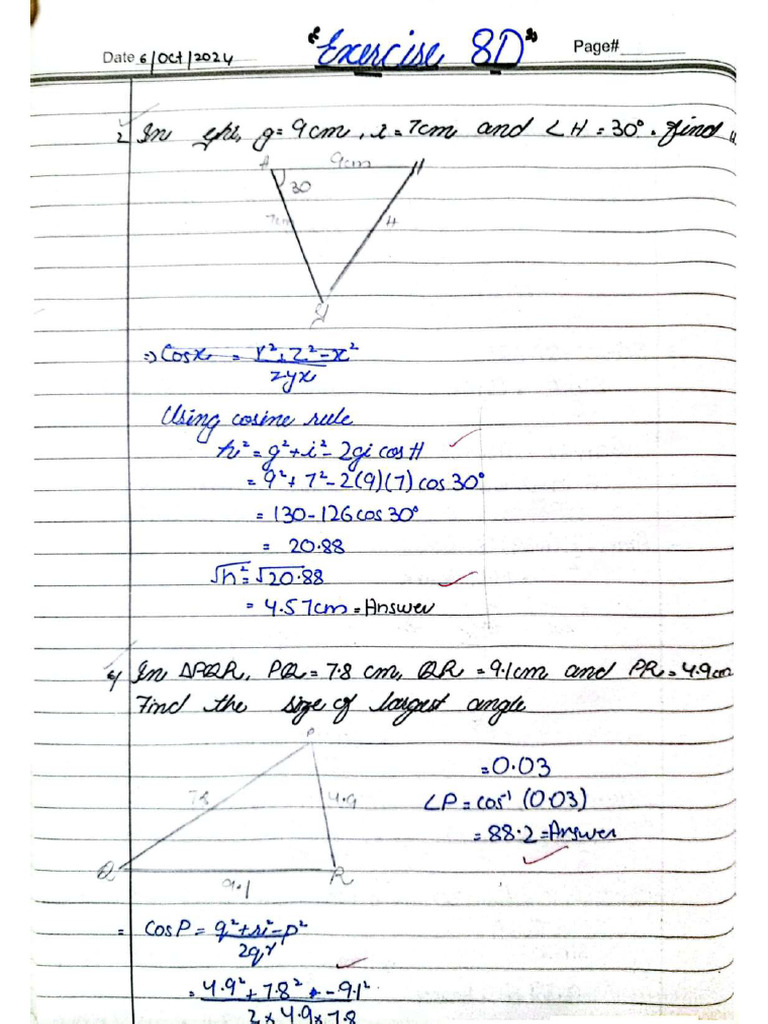 Date 6/Oct/2024 "Exercise 8D" Page#
2 In ghi, g=9cm, i=7cm and ∠H=30°. find
9cm
H
30
7cm
H
=> Cosx = Y²+Z²-x²
2yx
Using cosine rule
h²=g²+i²-2gi cosH
=9²+7²-2(9)(7)cos30°
=130-126cos30°
= 20.88
√h²=√20.88
= 4.57cm=Answer
4) In △PQR, PQ=7.8 cm, QR=9.1cm and PR=4.9cm
Find the size of largest angle
P
=0.03
7.8 4.9 ∠P=cos⁻¹(0.03)
=88.2=Answer
Q R
9.1
= CosP= q²+r²-p²
2qr
= 4.9²+7.8²-9.1²
2x4.9x7.8